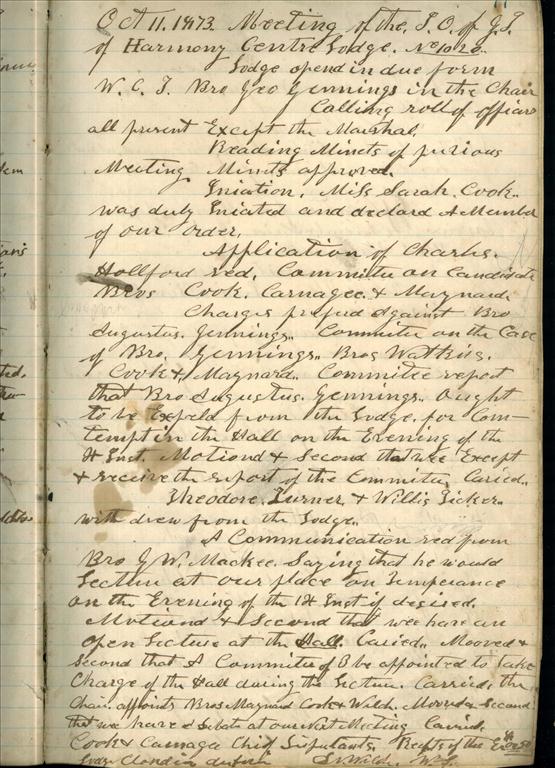 Oct 11. 1873. Meeting of the I. O. of G. T.
of Harmony Centre Lodge. No 1020.
Lodge opend in due form
W. C. T. Bro Geo Gennings in the Chair
Calling roll of officers
all present Except the Marshal,
Reading Minets of previous
Meeting Minets approved.
Iniation. Miss Sarah. Cook..
was duly Iniated and declard A Member
of our order,
Application of Charles.
Hollford red. Committe on Candidate
Bros Cook. Carnagee. & Maynard.
Charges prefred Against Bro
Augustus. Gennings.. Committee on the Case
of Bro. Gennings.. Bros Watkins.
Cook &. Maynard.. Committee report
that Bro Augustus. Gennings.. Ought
to be Expeld from the Lodge. for Com-
tempt in the Hall on the Evening of the
Inst. Motiond & Second that wee Except
& receive the report of the Committee Caried..
Theodore. Turner. & Willis Ticker..
with drew from the Lodge..
A Communication red from
Bro G W. Mackee. Saying that he would
Lecture at our place on Temperance
on the Evening of the Inst if desired.
Motiond & Second that wee have an
open Lecture at the Hall. Caried.. Mooved &
Second that A Committee of 3 be appointed to take
Charge of the Hall during the Lecture. Carried. the
Chair. appoints Bros Maynard Cook & Welch. Mooved & Second
that we have a Debate at our Next Meeting Caried.
Cook & Carnagee Chief Disputants. Recpts of the Eve
Lodge Closd in due form W. S.